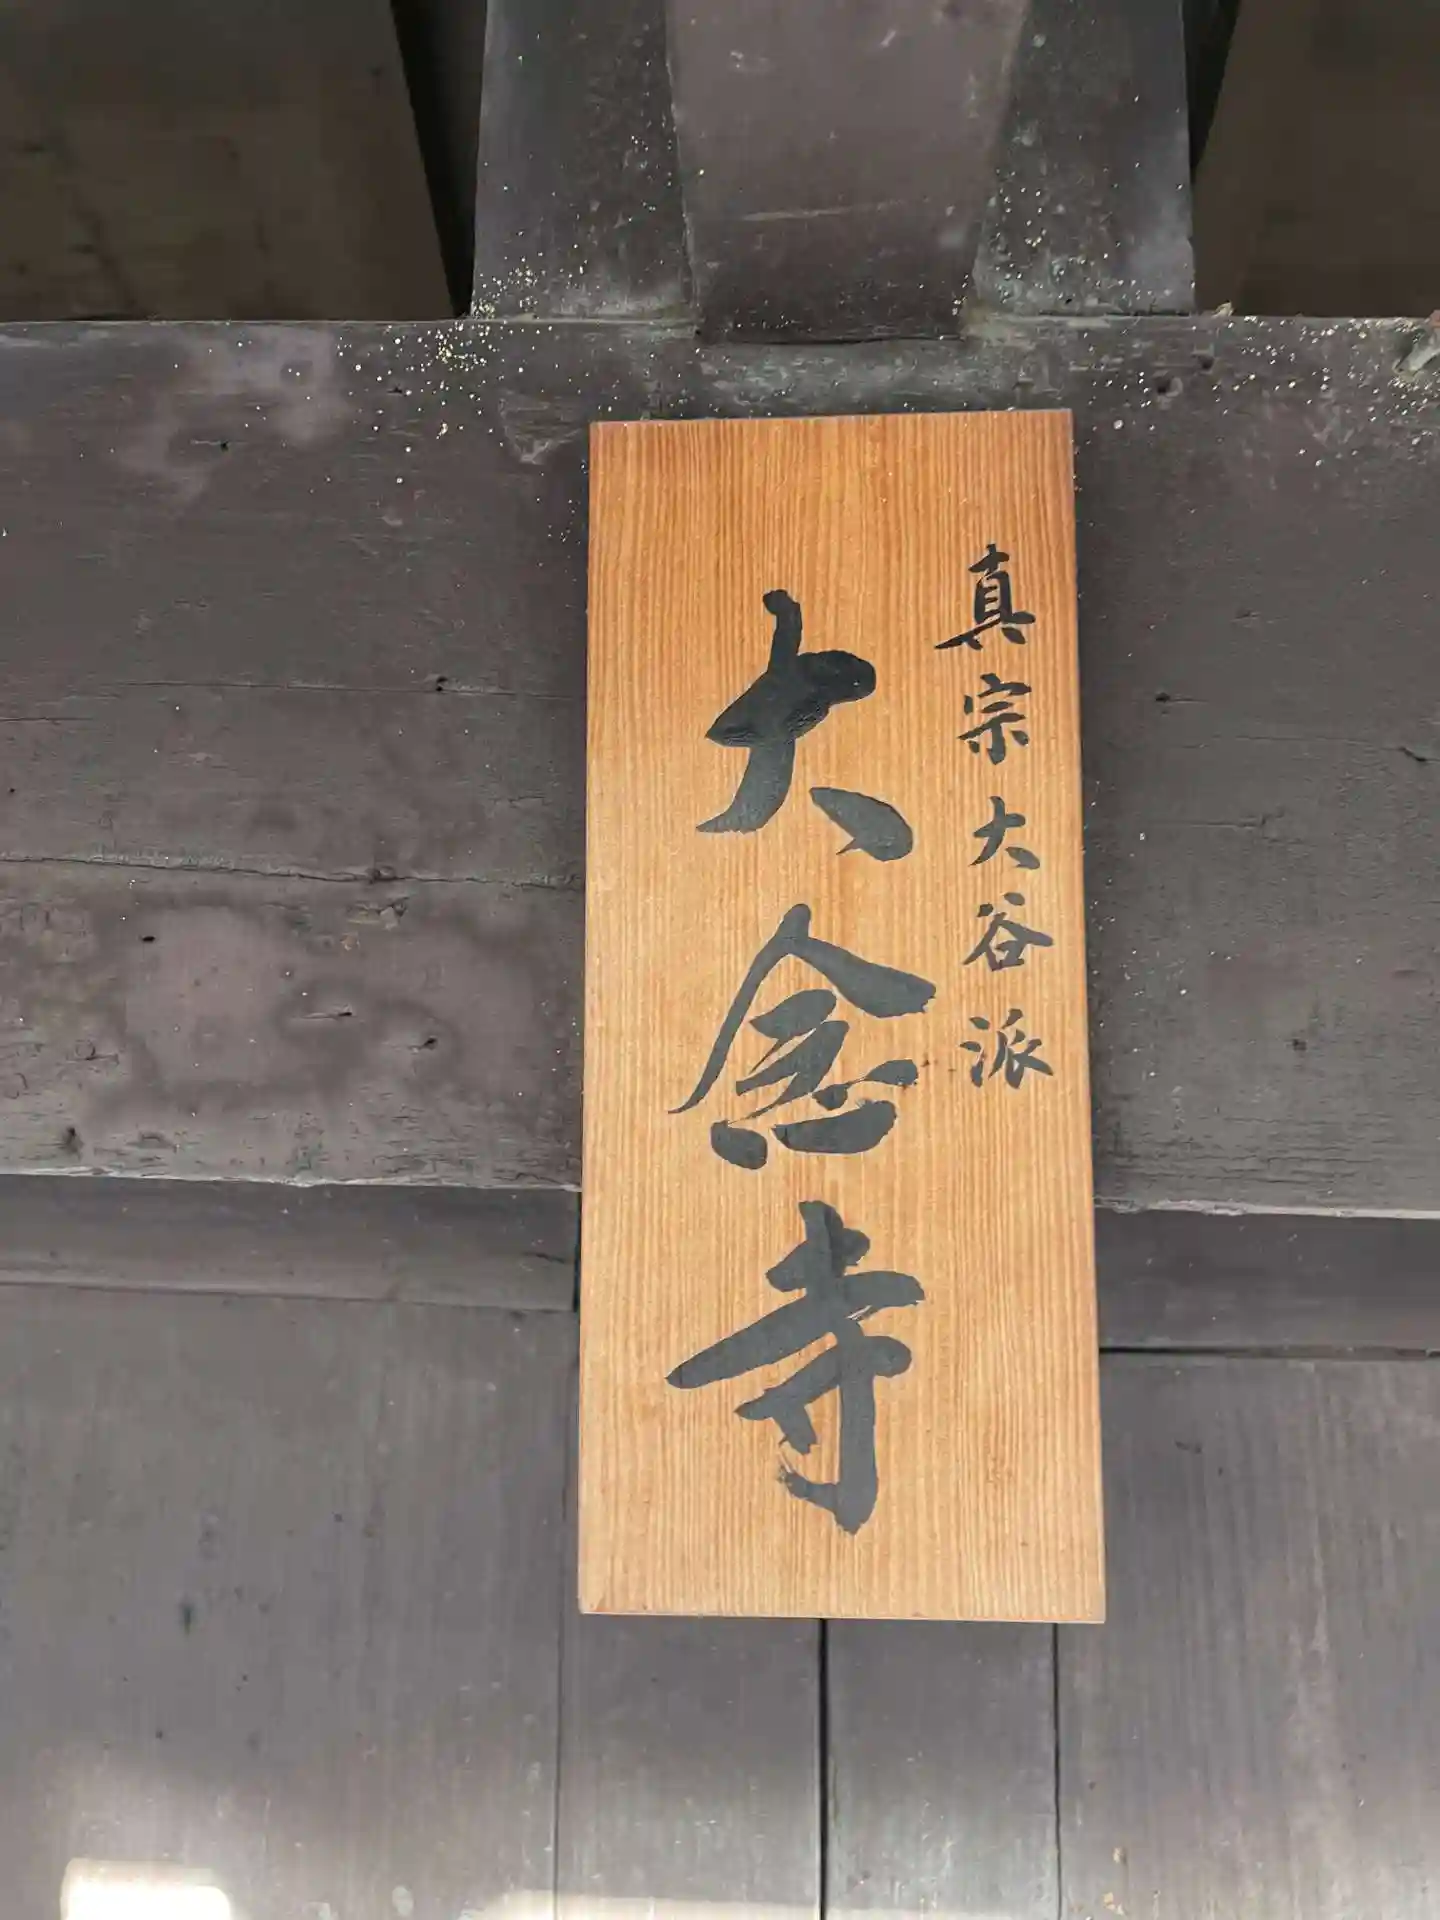 真宗大谷派
大念寺